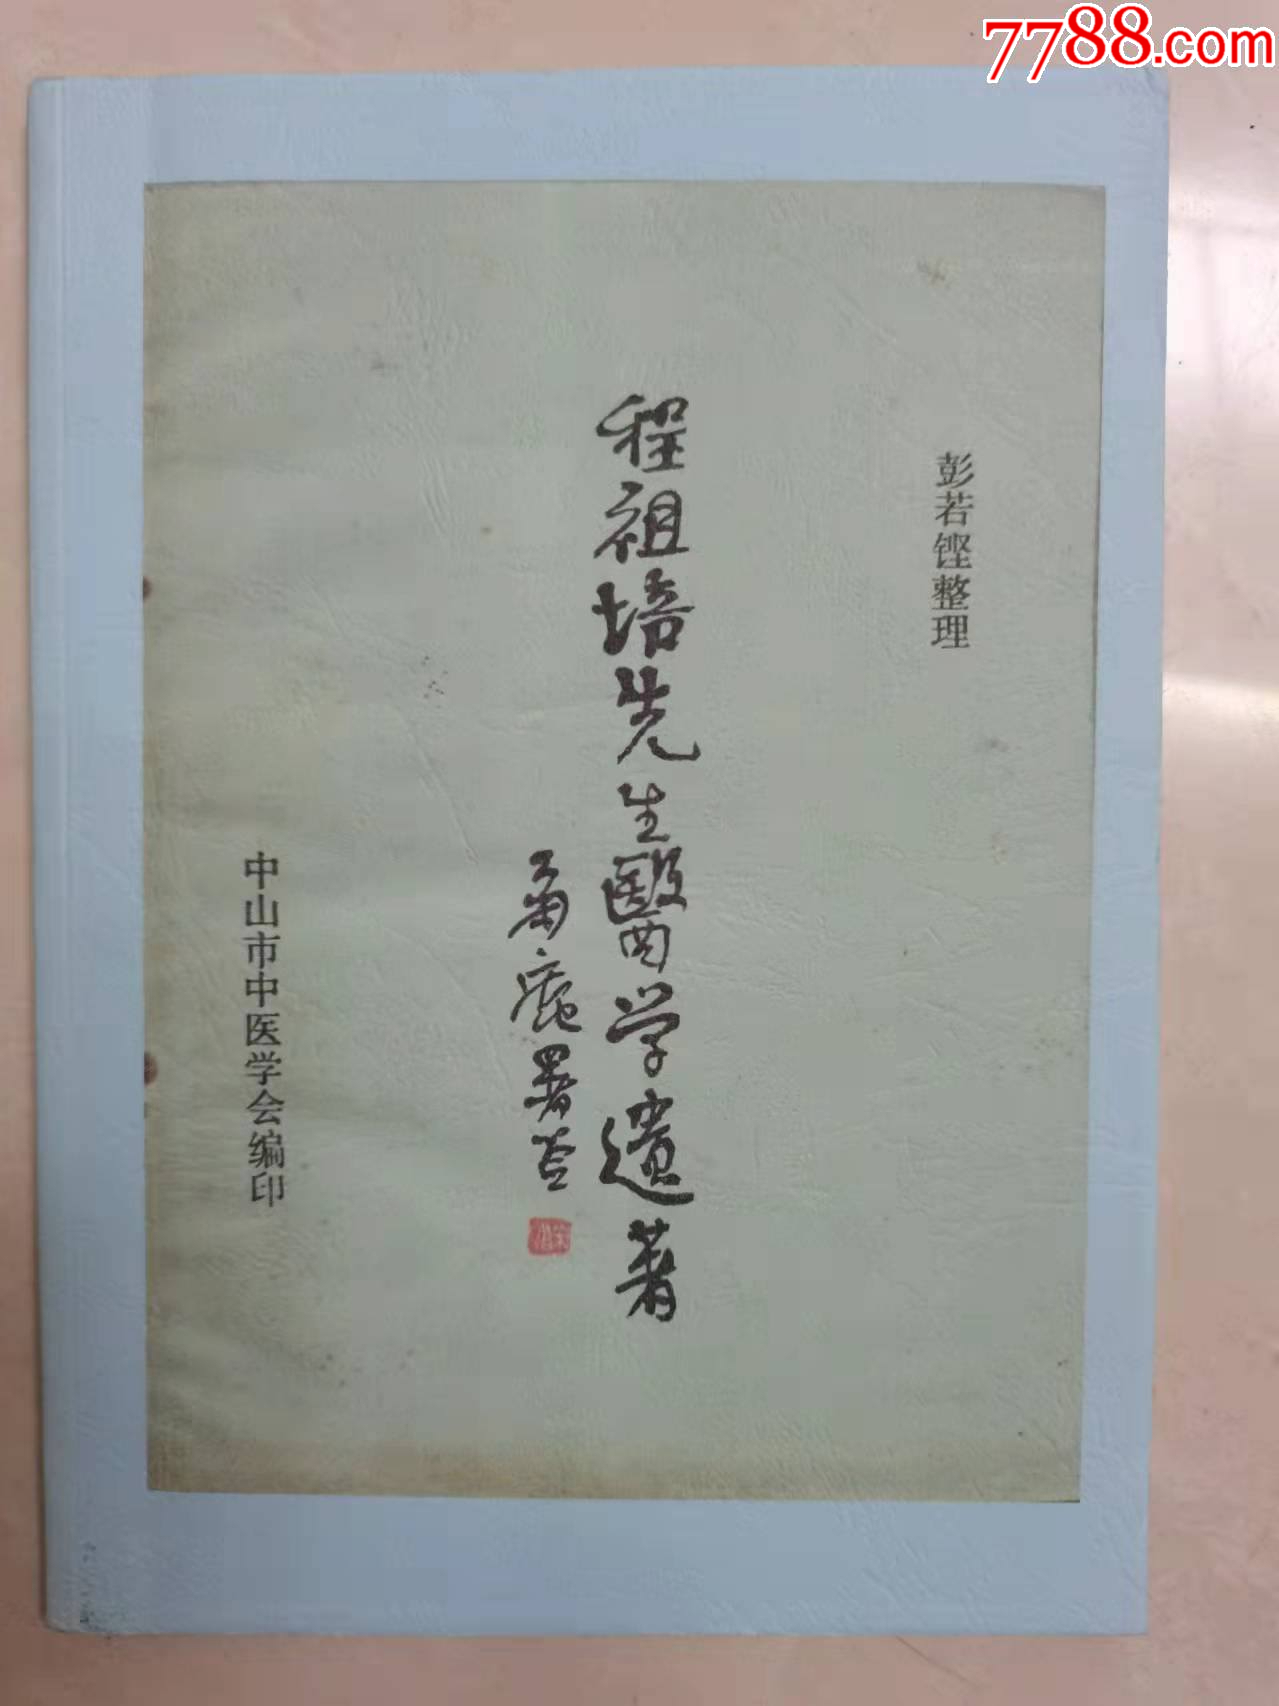 7788.com
彭若铿整理
程祖培先生醫学遗著
署签
中山市中医学会编印